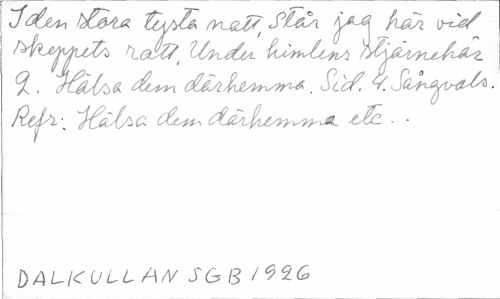 I den stora tysta natt, Står jag här vid
skeppets ratt, Under himlens stjärnehär
2. Hälsa dem därhemma. Sid. 4. Sångvals.
Refr: Hälsa dem därhemma etc..
DALKULLAN SGB 1926